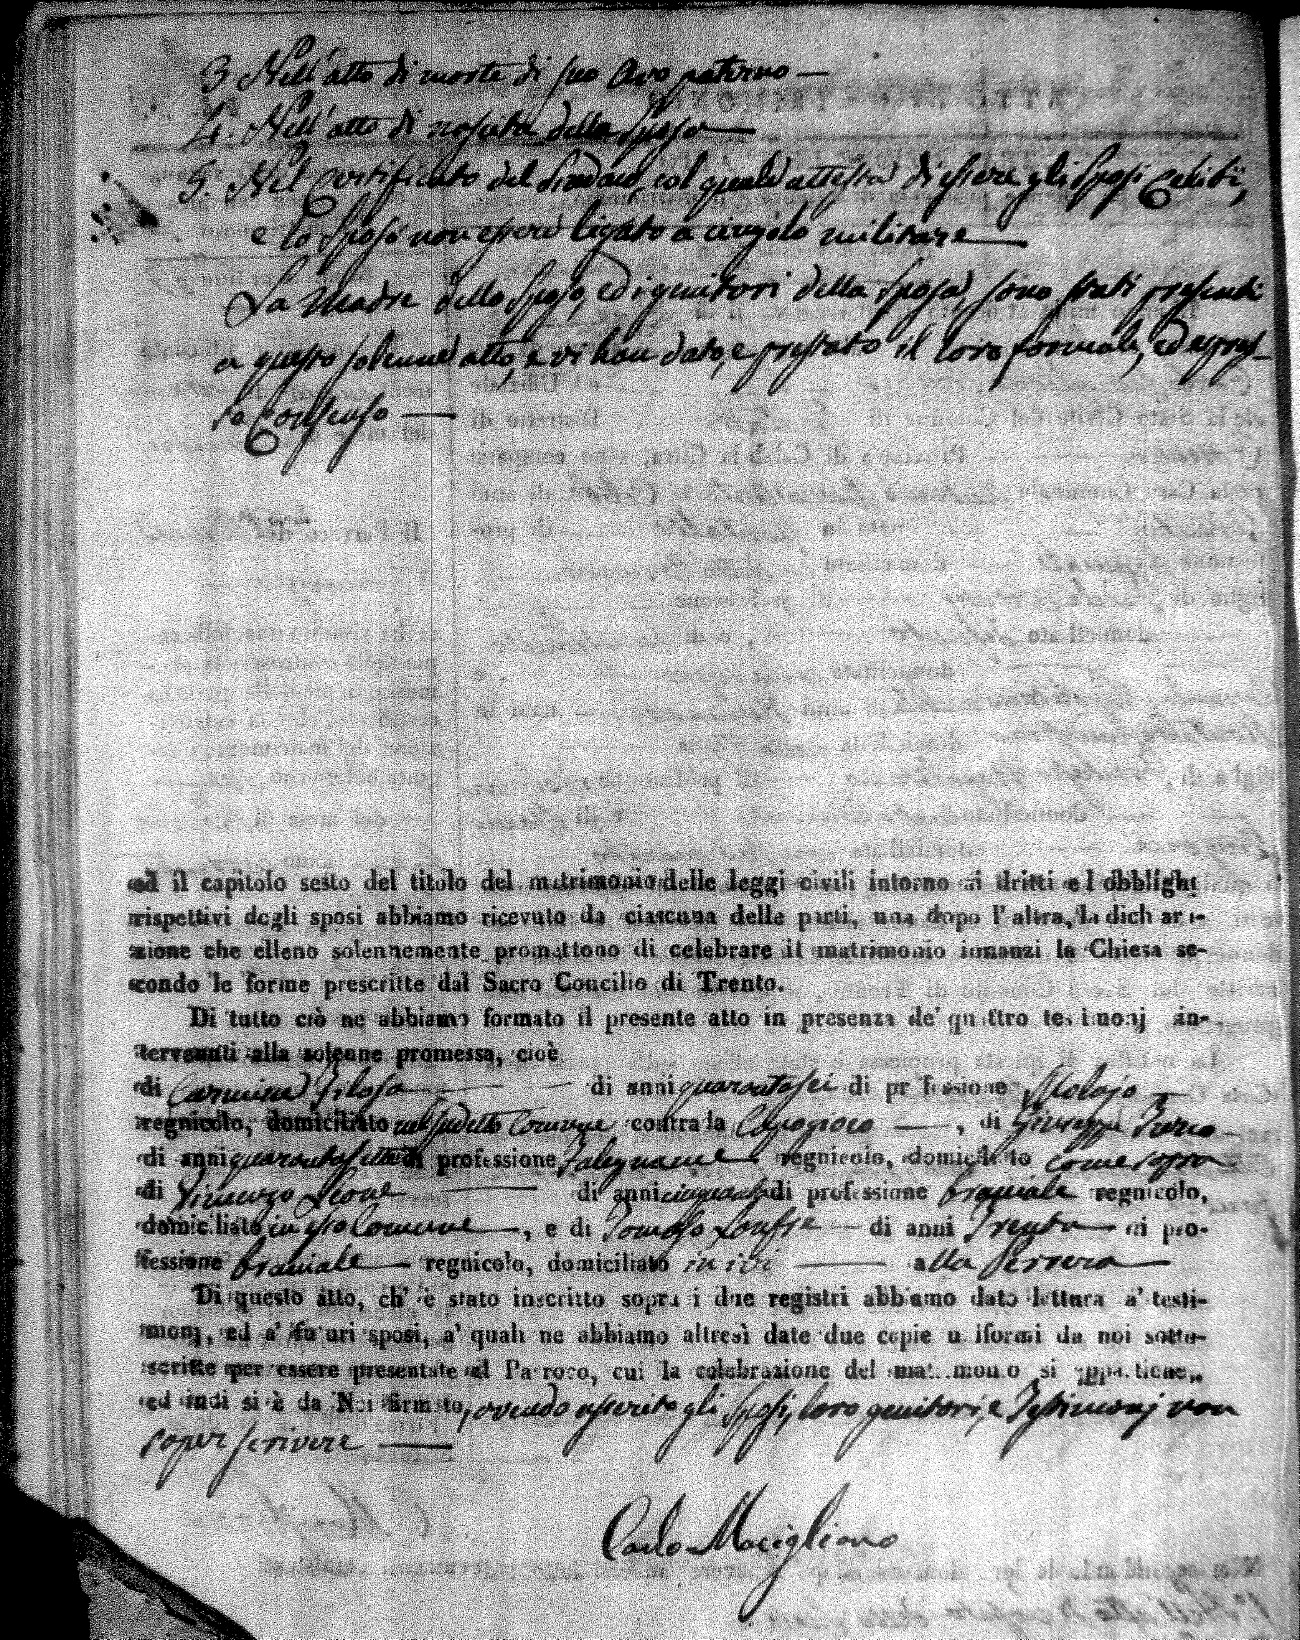 3. Nell'atto di morte di suo Avo paterno —
4. Nell'atto di nascita della Sposa —
5. Nel Certificato del Sindaco, col quale attesta di essere gli Sposi Celibi,
e lo Sposo non essere ligato a cingolo militare —
La Madre dello Sposo, ed i genitori della Sposa, sono stati presenti
a questo solenne atto, e vi han dato, e prestato il loro formale, ed espres-
so Consenso —
ed il capitolo sesto del titolo del matrimonio delle leggi civili intorno ai dritti e l obblighi
rispettivi degli sposi abbiamo ricevuto da ciascuna delle parti, una dopo l' altra, la dichiara-
zione che elleno solennemente promettono di celebrare il matrimonio innanzi la Chiesa se-
condo le forme prescritte dal Sacro Concilio di Trento.
Di tutto ciò ne abbiamo formato il presente atto in presenza de' quattro testimonj in-
tervenuti alla solenne promessa, cioè
di Carmine Filosa — di anni quarantasei di professione
regnicolo, domiciliato nel sudetto Comune contrada Capogioco —, di Giuseppe
di anni quarantasette di professione Falegname regnicolo, domiciliato come sopra
di Vincenzo Leone — di anni cinquanta di professione braciale regnicolo,
domiciliato in esso Comune —, e di Tomaso — di anni Trenta — di pro-
fessione braciale — regnicolo, domiciliato in ivi — alla Perrera —
Di questo atto, ch' è stato inscritto sopra i due registri abbiamo dato lettura a' testi-
monj, ed a' futuri sposi, a' quali ne abbiamo altresì date due copie uniformi da noi sotto-
scritte per essere presentate al Parroco, cui la celebrazione del matrimonio si appartiene,
ed indi si è da Noi firmato, avendo asserito gli Sposi, loro genitori, e Testimonj non
saper scrivere —
Carlo Macigliano